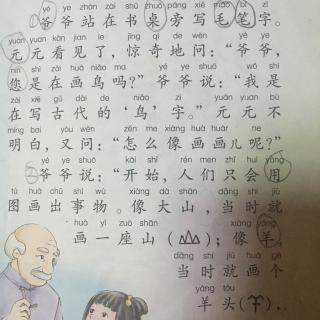 yé ye zhàn zài shū zhuō páng xiě máo bǐ zì
①爷爷站在书桌旁写毛笔字。
yuán yuan kàn jiàn le jīng qí de wèn yé ye
元元看见了，惊奇地问：“爷爷，
nín shì zài huà niǎo ma yé ye shuō wǒ shì
您是在画鸟吗？”爷爷说：“我是
zài xiě gǔ dài de niǎo zì yuán yuan bù
在写古代的‘鸟’字。”元元不
míng bai yòu wèn zěn me xiàng huà huàr ne
明白，又问：“怎么像画画儿呢？”
yé ye shuō kāi shǐ rén men zhǐ huì yòng
②爷爷说：“开始，人们只会用
tú huà chū shì wù xiàng dà shān dāng shí jiù
图画出事物。像大山，当时就
huà yí zuò shān xiàng yáng
画一座山（）；像羊，
dāng shí jiù huà gè
当时就画个
yáng tóu
羊头（），